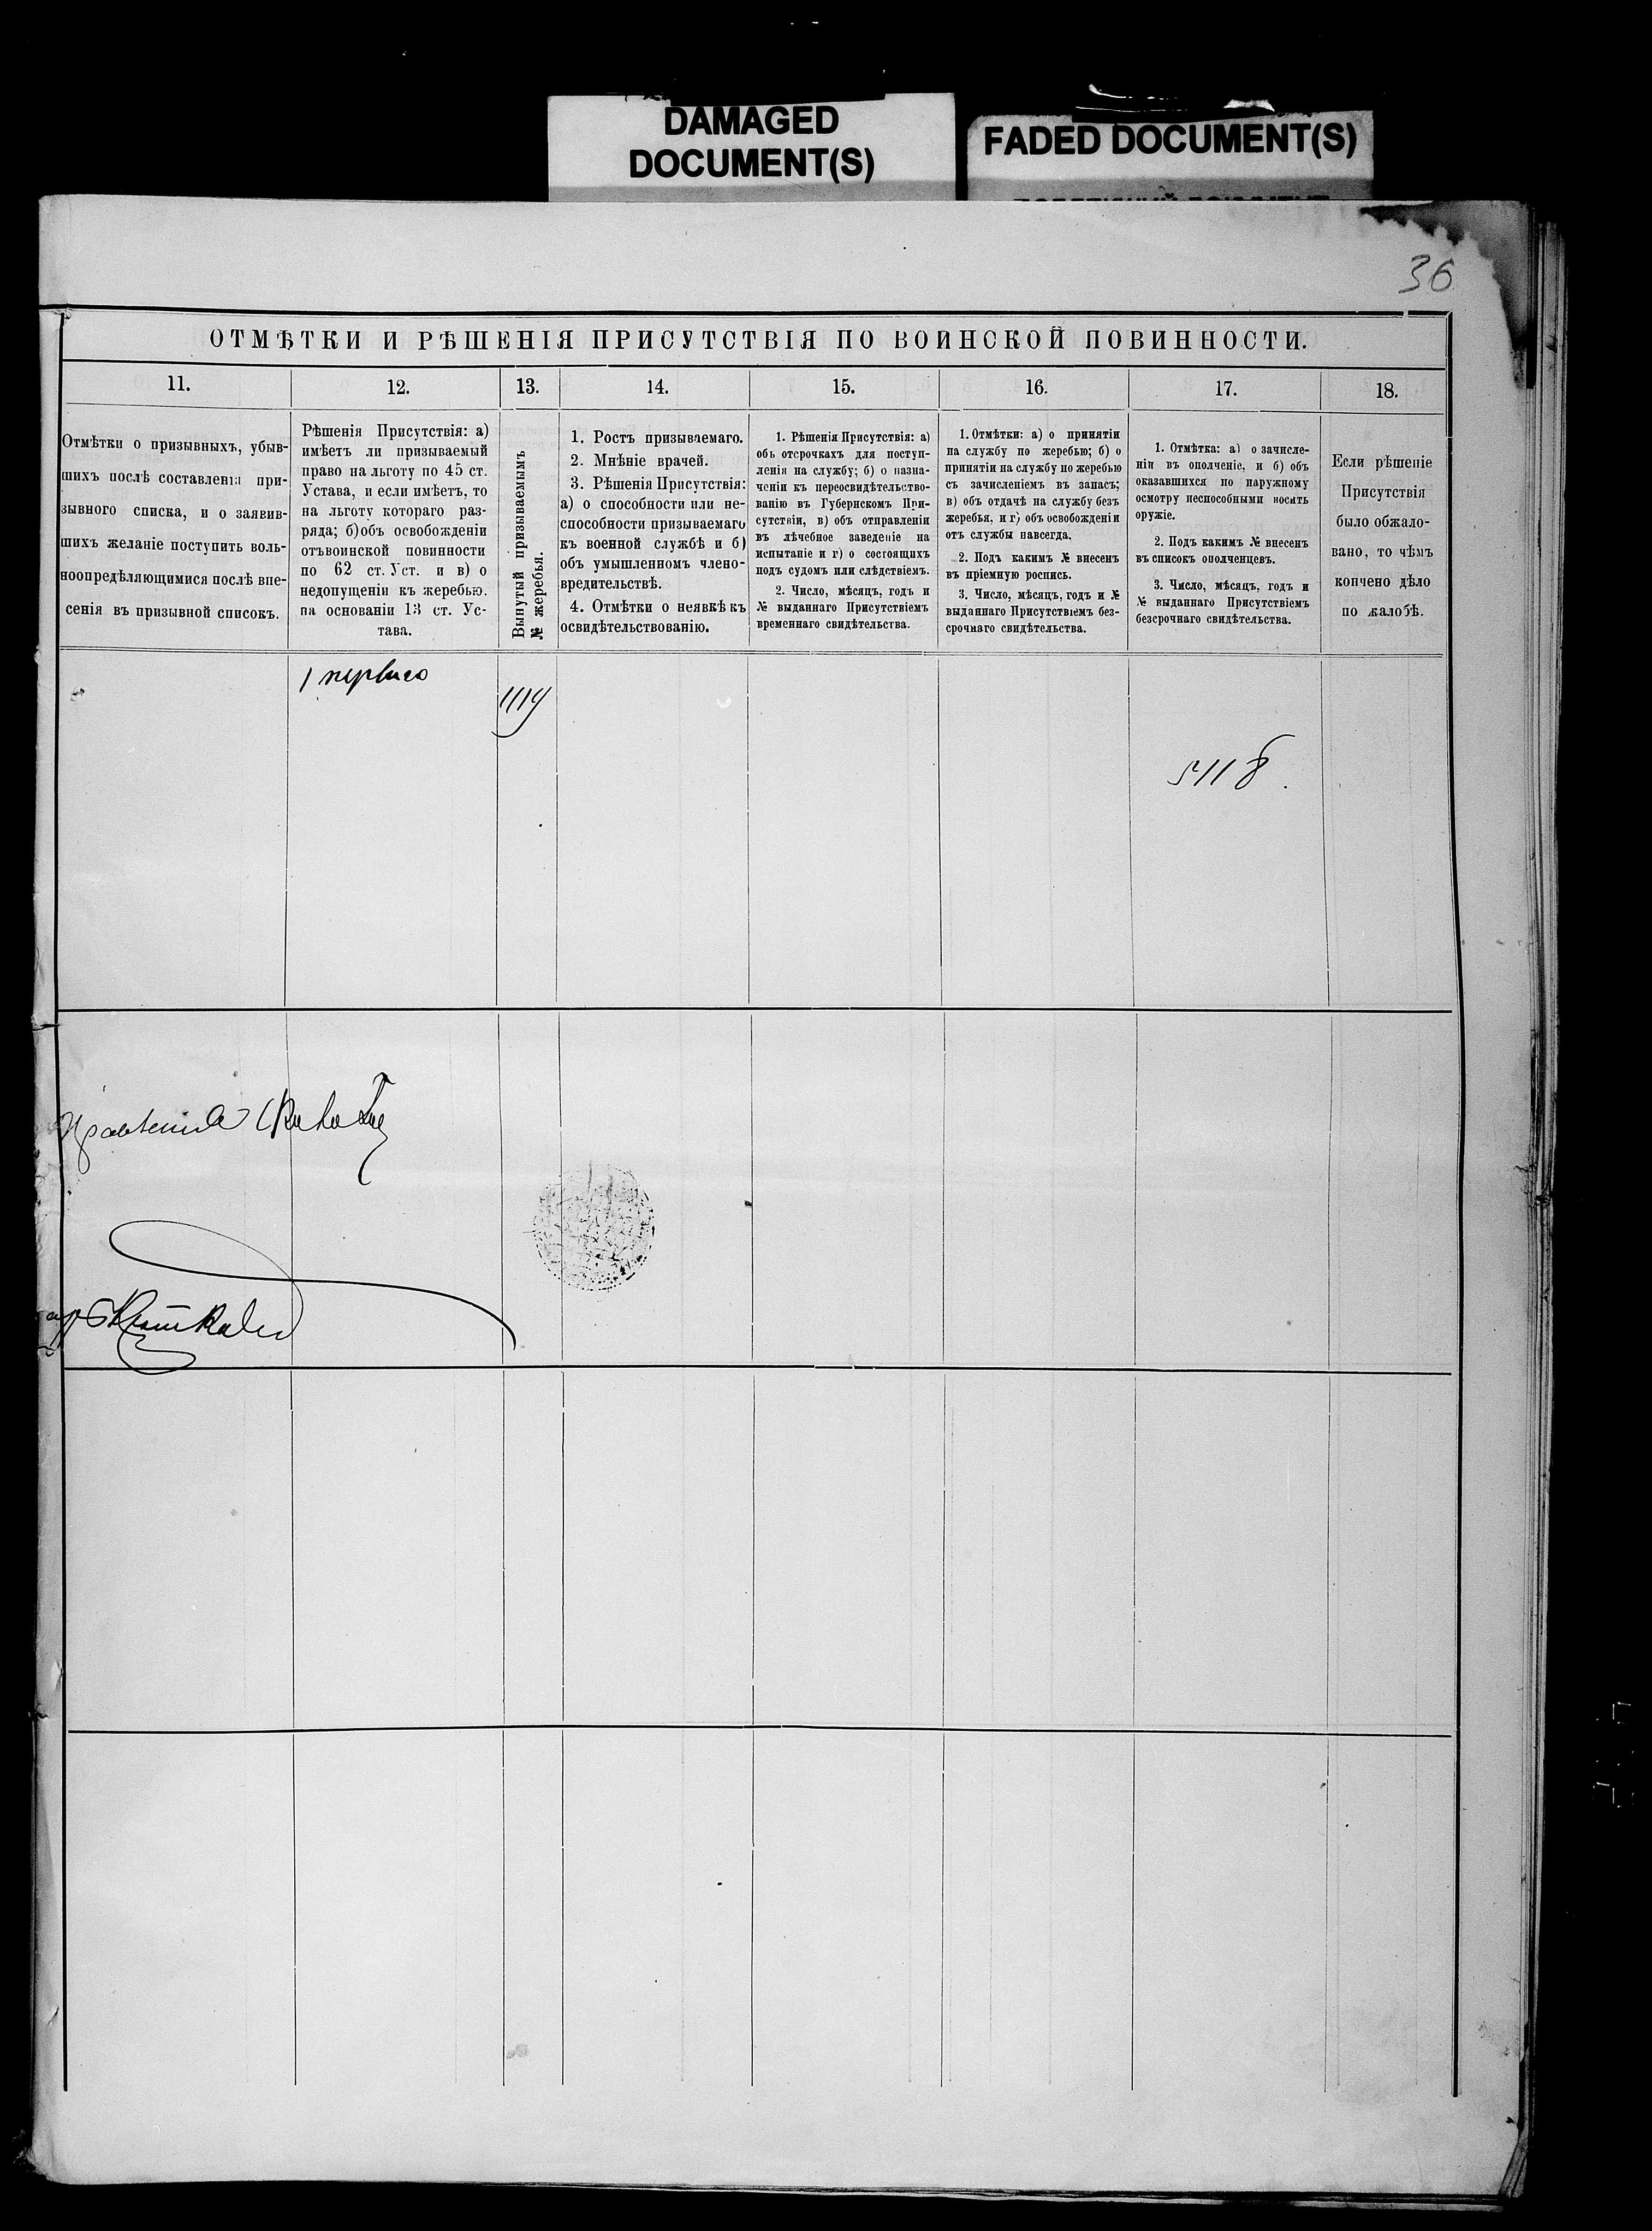 DAMAGED
DOCUMENT(S)
FADED DOCUMENT(S)
36
ОТМѢТКИ И РѢШЕНІЯ ПРИСУТСТВІЯ ПО ВОИНСКОЙ ПОВИННОСТИ.
11.
12.
13.
14.
15.
16.
17.
18.
Отмѣтки о призывныхъ, убыв-
шихъ послѣ составленія при-
зывного списка, и о заявив-
шихъ желаніе поступить воль-
ноопредѣляющимися послѣ вне-
сенія въ призывной списокъ.
Рѣшенія Присутствія: а)
имѣетъ ли призываемый
право на льготу по 45 ст.
Устава, и если имѣетъ, то
на льготу котораго раз-
ряда; б) объ освобожденіи
отъ воинской повинности
по 62 ст. Уст. и в) о
недопущеніи къ жеребью.
на основаніи 13 ст. Ус-
тава.
Вынутый призываемымъ
№ жеребья.
1. Ростъ призываемаго.
2. Мнѣніе врачей.
3. Рѣшенія Присутствія:
а) о способности или не-
способности призываемаго
къ военной службѣ и б)
объ умышленномъ члено-
вредительствѣ.
4. Отмѣтки о неявкѣ къ
освидѣтельствованію.
1. Рѣшенія Присутствія: а)
объ отсрочкахъ для поступ-
ленія на службу; б) о назна-
ченіи къ переосвидѣтельство-
ванію въ Губернскомъ При-
сутствіи, в) объ отправленіи
въ лѣчебное заведеніе на
испытаніе и г) о состоящихъ
подъ судомъ или слѣдствіемъ.
2. Число, мѣсяцъ, годъ и
№ выданнаго Присутствіемъ
временнаго свидѣтельства.
1. Отмѣтки: а) о принятіи
на службу по жеребью; б) о
принятіи на службу по жеребью
съ зачисленіемъ въ запасъ;
в) объ отдачѣ на службу безъ
жеребья, и г) объ освобожденіи
отъ службы навсегда.
2. Подъ какимъ № внесенъ
въ пріемную роспись.
3. Число, мѣсяцъ, годъ и №
выданнаго Присутствіемъ без-
срочнаго свидѣтельства.
1. Отмѣтка: а) о зачисле-
ніи въ ополченіе, и б) объ
оказавшихся по наружному
осмотру неспособными носить
оружіе.
2. Подъ какимъ № внесенъ
въ списокъ ополченцевъ.
3. Число, мѣсяцъ, годъ и
№ выданнаго Присутствіемъ
безсрочнаго свидѣтельства.
Если рѣшеніе
Присутствія
было обжало-
вано, то чѣмъ
кончено дѣло
по жалобѣ.
1 перваго
1119
5118.